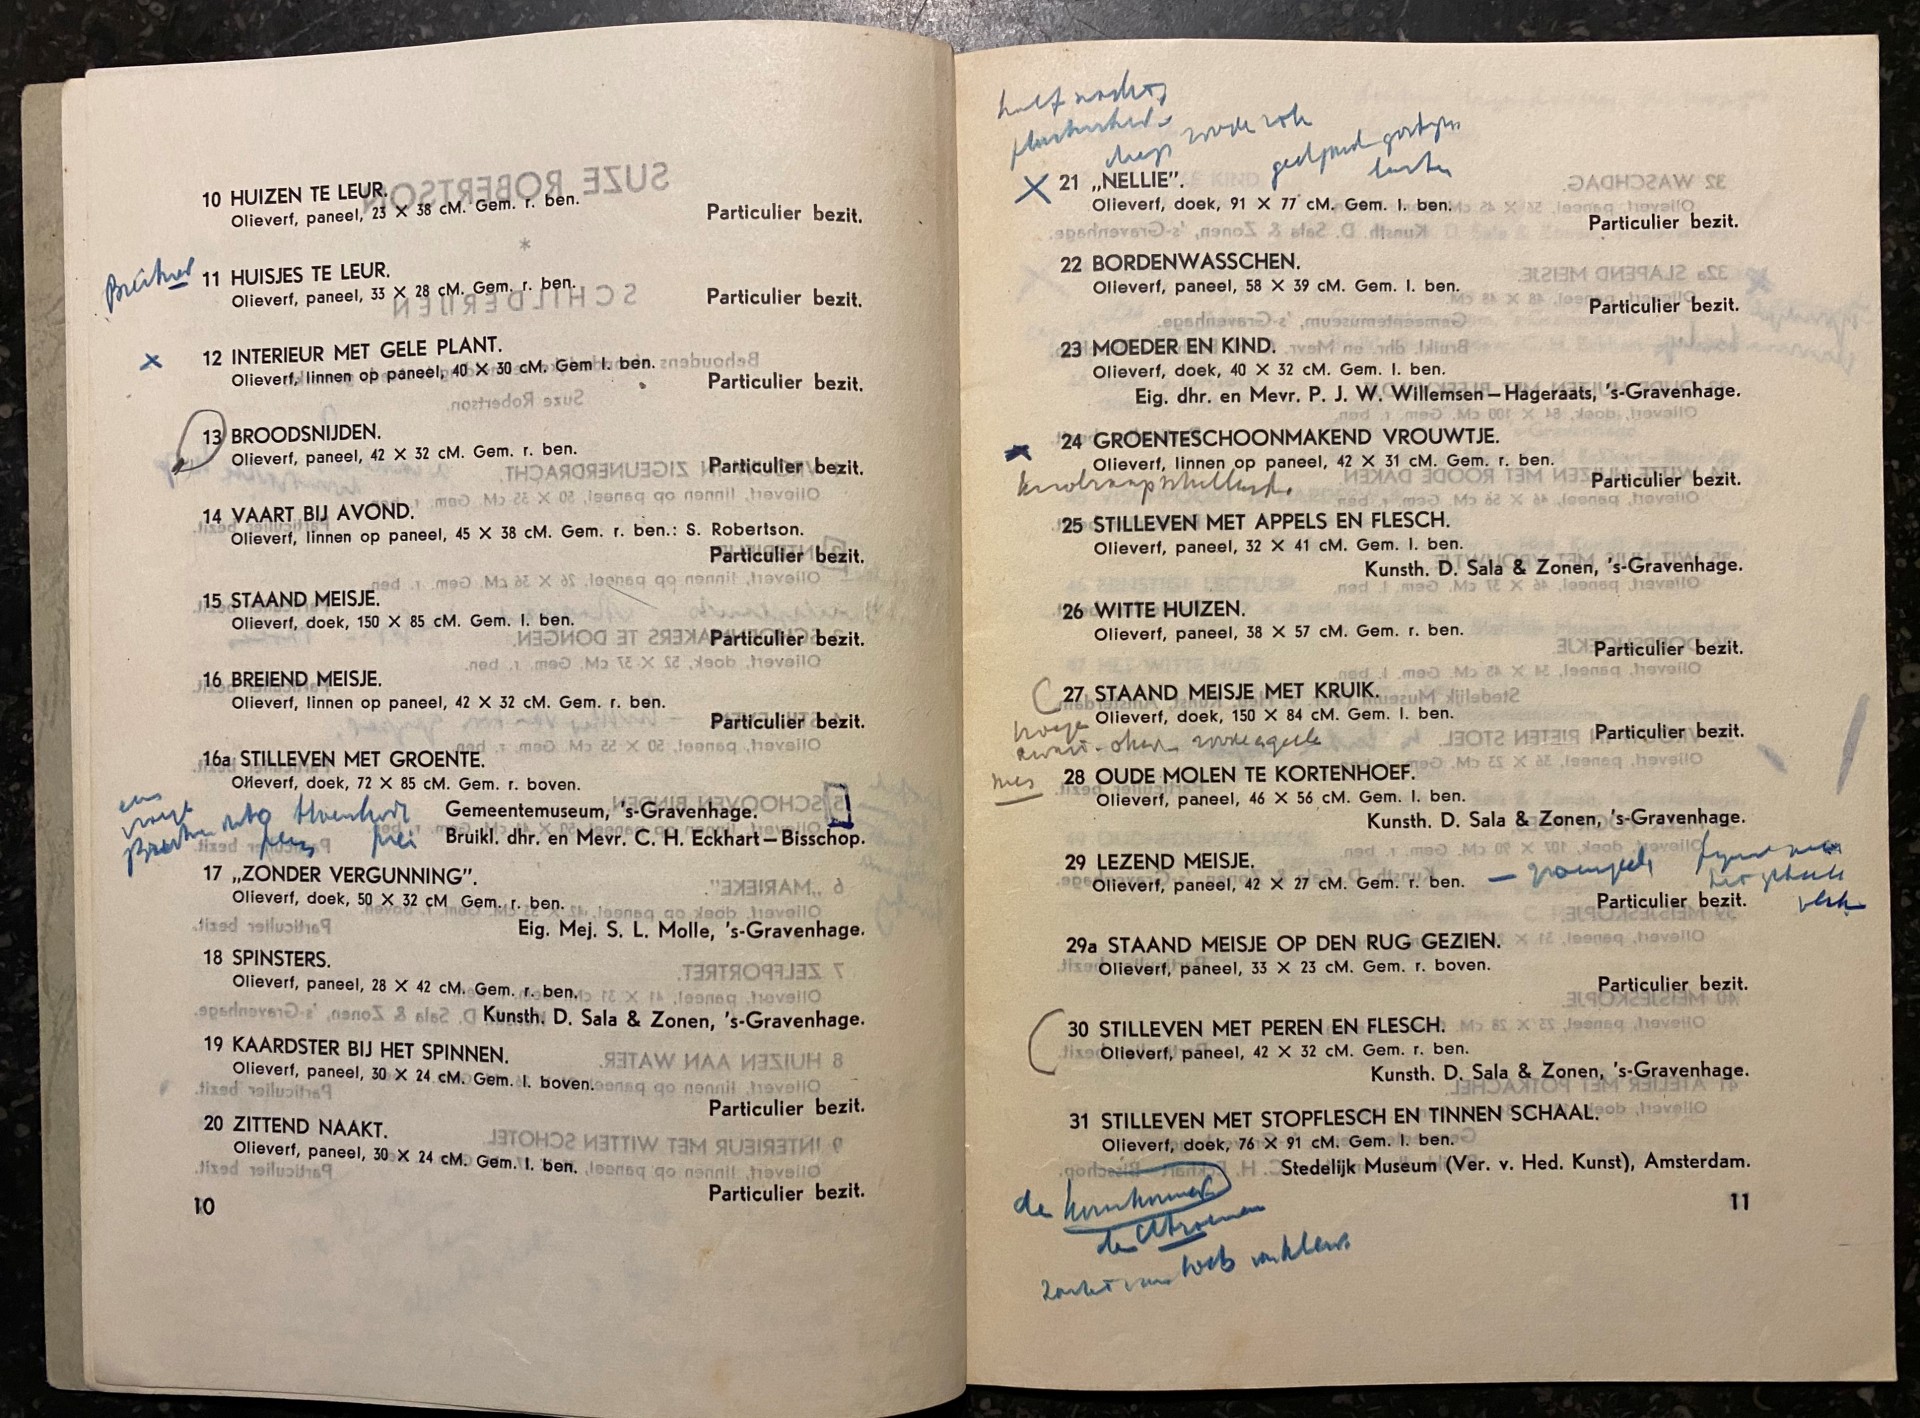 10 HUIZEN TE LEUR.
Olieverf, paneel, 23 X 38 cM. Gem. r. ben.
Particulier bezit.
Breitner
11 HUISJES TE LEUR.
Olieverf, paneel, 33 X 28 cM. Gem. r. ben.
Particulier bezit.
X
12 INTERIEUR MET GELE PLANT.
Olieverf, linnen op paneel, 40 X 30 cM. Gem l. ben.
Particulier bezit.
13 BROODSNIJDEN.
Olieverf, paneel, 42 X 32 cM. Gem. r. ben.
Particulier bezit.
14 VAART BIJ AVOND.
Olieverf, linnen op paneel, 45 X 38 cM. Gem. r. ben.: S. Robertson.
Particulier bezit.
15 STAAND MEISJE.
Olieverf, doek, 150 X 85 cM. Gem. l. ben.
Particulier bezit.
16 BREIEND MEISJE.
Olieverf, linnen op paneel, 42 X 32 cM. Gem. r. ben.
Particulier bezit.
16a STILLEVEN MET GROENTE.
Olieverf, doek, 72 X 85 cM. Gem. r. boven.
Gemeentemuseum, 's-Gravenhage.
Bruikl. dhr. en Mevr. C. H. Eckhart—Bisschop.
17 „ZONDER VERGUNNING".
Olieverf, doek, 50 X 32 cM Gem. r. ben.
Eig. Mej. S. L. Molle, 's-Gravenhage.
18 SPINSTERS.
Olieverf, paneel, 28 X 42 cM. Gem. r. ben.
Kunsth. D. Sala & Zonen, 's-Gravenhage.
19 KAARDSTER BIJ HET SPINNEN.
Olieverf, paneel, 30 X 24 cM. Gem. l. boven.
Particulier bezit.
20 ZITTEND NAAKT.
Olieverf, paneel, 30 X 24 cM. Gem. l. ben.
Particulier bezit.
10
half
X
21 „NELLIE".
Olieverf, doek, 91 X 77 cM. Gem. l. ben.
Particulier bezit.
22 BORDENWASSCHEN.
Olieverf, paneel, 58 X 39 cM. Gem. l. ben.
Particulier bezit.
23 MOEDER EN KIND.
Olieverf, doek, 40 X 32 cM. Gem. l. ben.
Eig. dhr. en Mevr. P. J. W. Willemsen—Hageraats, 's-Gravenhage.
24 GROENTESCHOONMAKEND VROUWTJE.
Olieverf, linnen op paneel, 42 X 31 cM. Gem. r. ben.
Particulier bezit.
25 STILLEVEN MET APPELS EN FLESCH.
Olieverf, paneel, 32 X 41 cM. Gem. l. ben.
Kunsth. D. Sala & Zonen, 's-Gravenhage.
26 WITTE HUIZEN.
Olieverf, paneel, 38 X 57 cM. Gem. r. ben.
Particulier bezit.
27 STAAND MEISJE MET KRUIK.
Olieverf, doek, 150 X 84 cM. Gem. l. ben.
Particulier bezit.
28 OUDE MOLEN TE KORTENHOEF.
Olieverf, paneel, 46 X 56 cM. Gem. l. ben.
Kunsth. D. Sala & Zonen, 's-Gravenhage.
29 LEZEND MEISJE.
Olieverf, paneel, 42 X 27 cM. Gem. r. ben.
Particulier bezit.
29a STAAND MEISJE OP DEN RUG GEZIEN.
Olieverf, paneel, 33 X 23 cM. Gem. r. boven.
Particulier bezit.
30 STILLEVEN MET PEREN EN FLESCH.
Olieverf, paneel, 42 X 32 cM. Gem. r. ben.
Kunsth. D. Sala & Zonen, 's-Gravenhage.
31 STILLEVEN MET STOPFLESCH EN TINNEN SCHAAL.
Olieverf, doek, 76 X 91 cM. Gem. l. ben.
Stedelijk Museum (Ver. v. Hed. Kunst), Amsterdam.
de
11